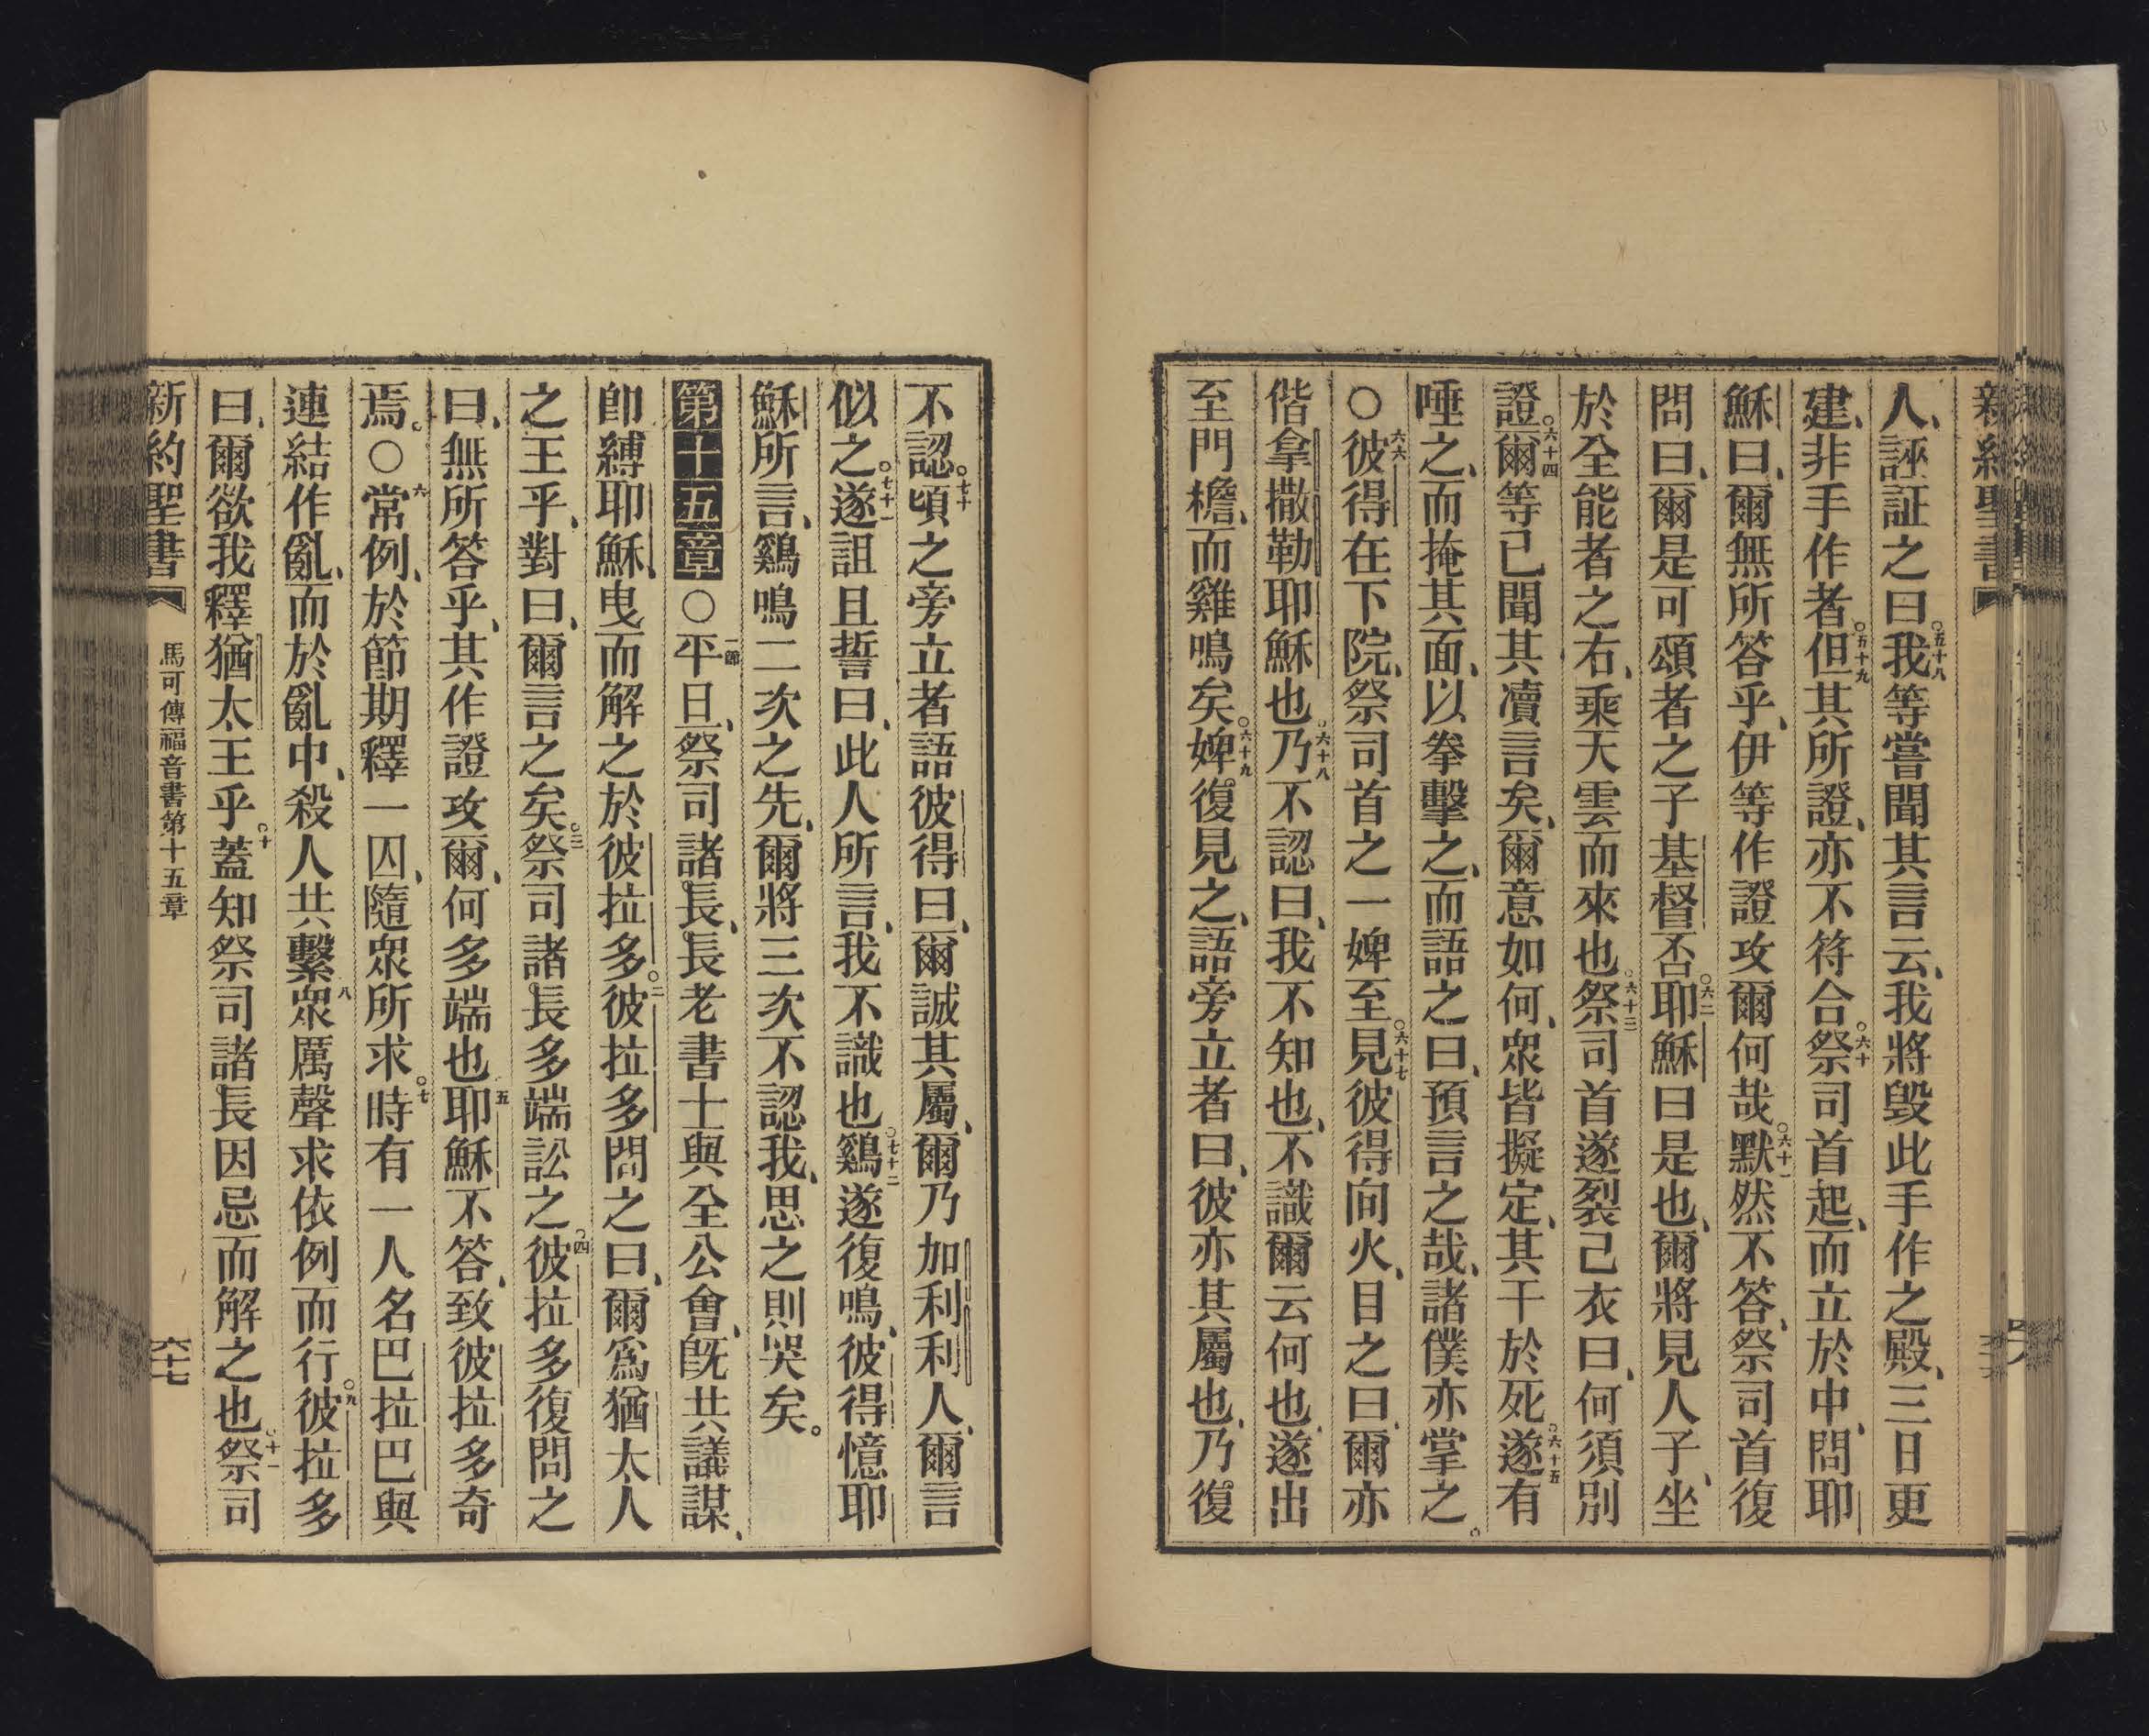 新約聖書
人、誣証之曰。五十八我等嘗聞其言云、我將毀此手作之殿、三日更
建、非手作者。五十九但其所證、亦不符合。六十祭司首起、而立於中、問耶
穌曰、爾無所答乎、伊等作證攻爾何哉。六十一默然不答、祭司首復
問曰、爾是可頌者之子基督否。六二耶穌曰是也、爾將見人子、坐
於全能者之右、乘天雲而來也。六十三祭司首遂裂己衣曰、何須別
證。六十四爾等已聞其瀆言矣、爾意如何、眾皆擬定、其干於死。六十五遂有
唾之、而掩其面、以拳擊之、而語之曰、預言之哉、諸僕亦掌之。
○六六彼得在下院、祭司首之一婢至。六十七見彼得向火、目之曰、爾亦
偕拿撒勒耶穌也。六十八乃不認曰、我不知也、不識爾云何也、遂出
至門檐、而雞鳴矣。六十九婢復見之、語旁立者曰、彼亦其屬也、乃復
不認。七十頃之旁立者語彼得曰、爾誠其屬、爾乃加利利人、爾言
似之。七十一遂詛且誓曰、此人所言、我不識也。七十二鷄遂復鳴、彼得憶耶
穌所言、鷄鳴二次之先、爾將三次不認我、思之則哭矣。
第十五章○一節平旦、祭司諸長、長老書士與全公會、旣共議謀、
卽縛耶穌、曳而解之於彼拉多。二彼拉多問之曰、爾爲猶太人
之王乎、對曰、爾言之矣。三祭司諸長多端訟之。四彼拉多復問之
曰、無所答乎、其作證攻爾、何多端也。五耶穌不答、致彼拉多奇
焉。○六常例、於節期釋一囚、隨眾所求。七時有一人名巴拉巴與
連結作亂、而於亂中、殺人共繫。八眾厲聲求依例而行。九彼拉多
曰、爾欲我釋猶太王乎。十蓋知祭司諸長因忌而解之也。十一祭司
新約聖書 馬可傳福音書第十五章 六十七